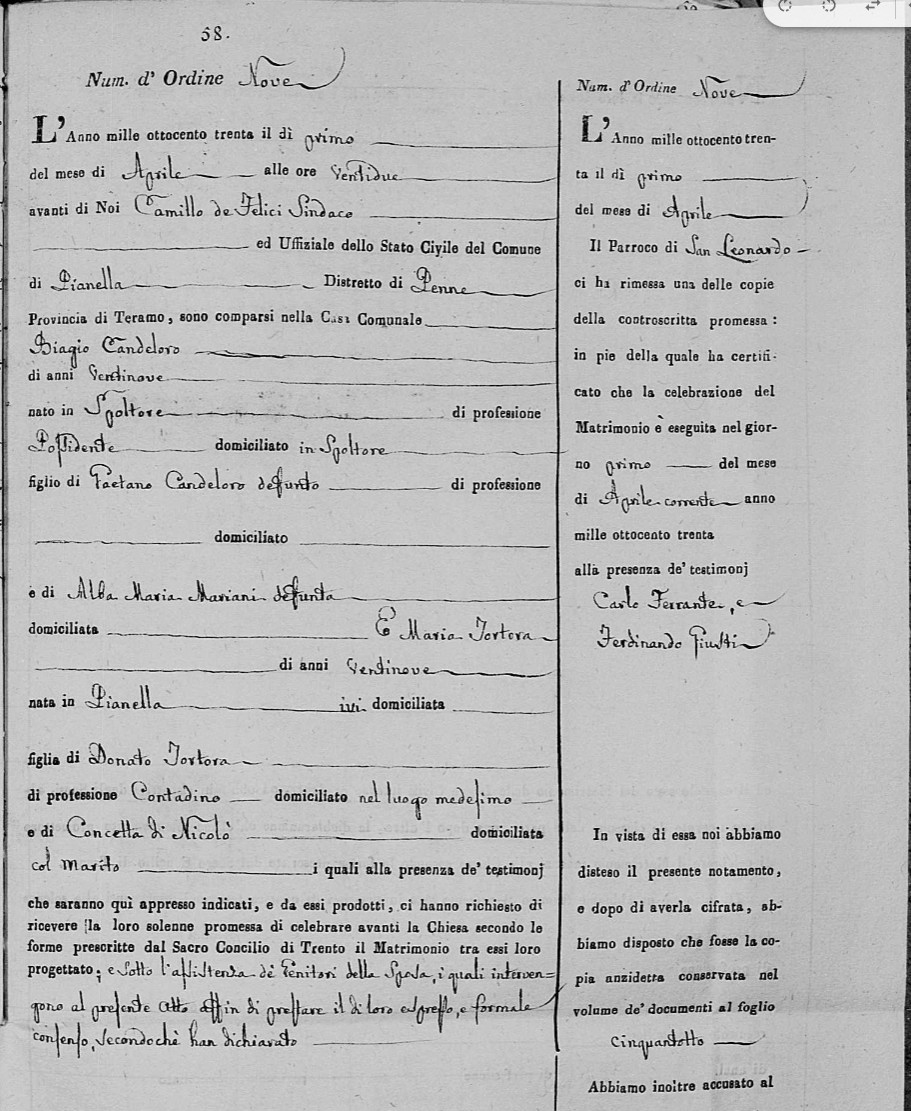 58.
Num. d' Ordine Nove
L'Anno mille ottocento trenta il dì primo
del mese di Aprile alle ore Ventidue
avanti di Noi Camillo de Felici Sindaco
ed Uffiziale dello Stato Civile del Comune
di Pianella Distretto di Penne
Provincia di Teramo, sono comparsi nella Casa Comunale
Biagio Candeloro
di anni Ventinove
nato in Spoltore di professione
Possidente domiciliato in Spoltore
figlio di Gaetano Candeloro defunto di professione
domiciliato
e di Alba Maria Mariani defunta
domiciliata E Maria Tortora
di anni Ventinove
nata in Pianella ivi domiciliata
figlia di Donato Tortora
di professione Contadino domiciliato nel luogo medesimo
e di Concetta di Nicolò domiciliata
col marito i quali alla presenza de' testimonj
che saranno quì appresso indicati, e da essi prodotti, ci hanno richiesto di
ricevere la loro solenne promessa di celebrare avanti la Chiesa secondo le
forme prescritte dal Sacro Concilio di Trento il Matrimonio tra essi loro
progettato; e sotto l'assistenza dè Genitori della Sposa, i quali interven=
gono al presente Atto affin di prestare il di loro espresso, e formale
consenso, secondochè han dichiarato
Num. d' Ordine Nove
L'Anno mille ottocento tren-
ta il dì primo
del mese di Aprile
Il Parroco di San Leonardo
ci ha rimessa una delle copie
della controscritta promessa:
in piè della quale ha certifi-
cato che la celebrazione del
Matrimonio è eseguita nel gior-
no primo del mese
di Aprile corrente anno
mille ottocento trenta
alla presenza de' testimonj
Carlo Ferrante, e
Ferdinando Giusti
In vista di essa noi abbiamo
disteso il presente notamento,
e dopo di averla cifrata, ab-
biamo disposto che fosse la co-
pia anzidetta conservata nel
volume de' documenti al foglio
Cinquantotto
Abbiamo inoltre accusato al